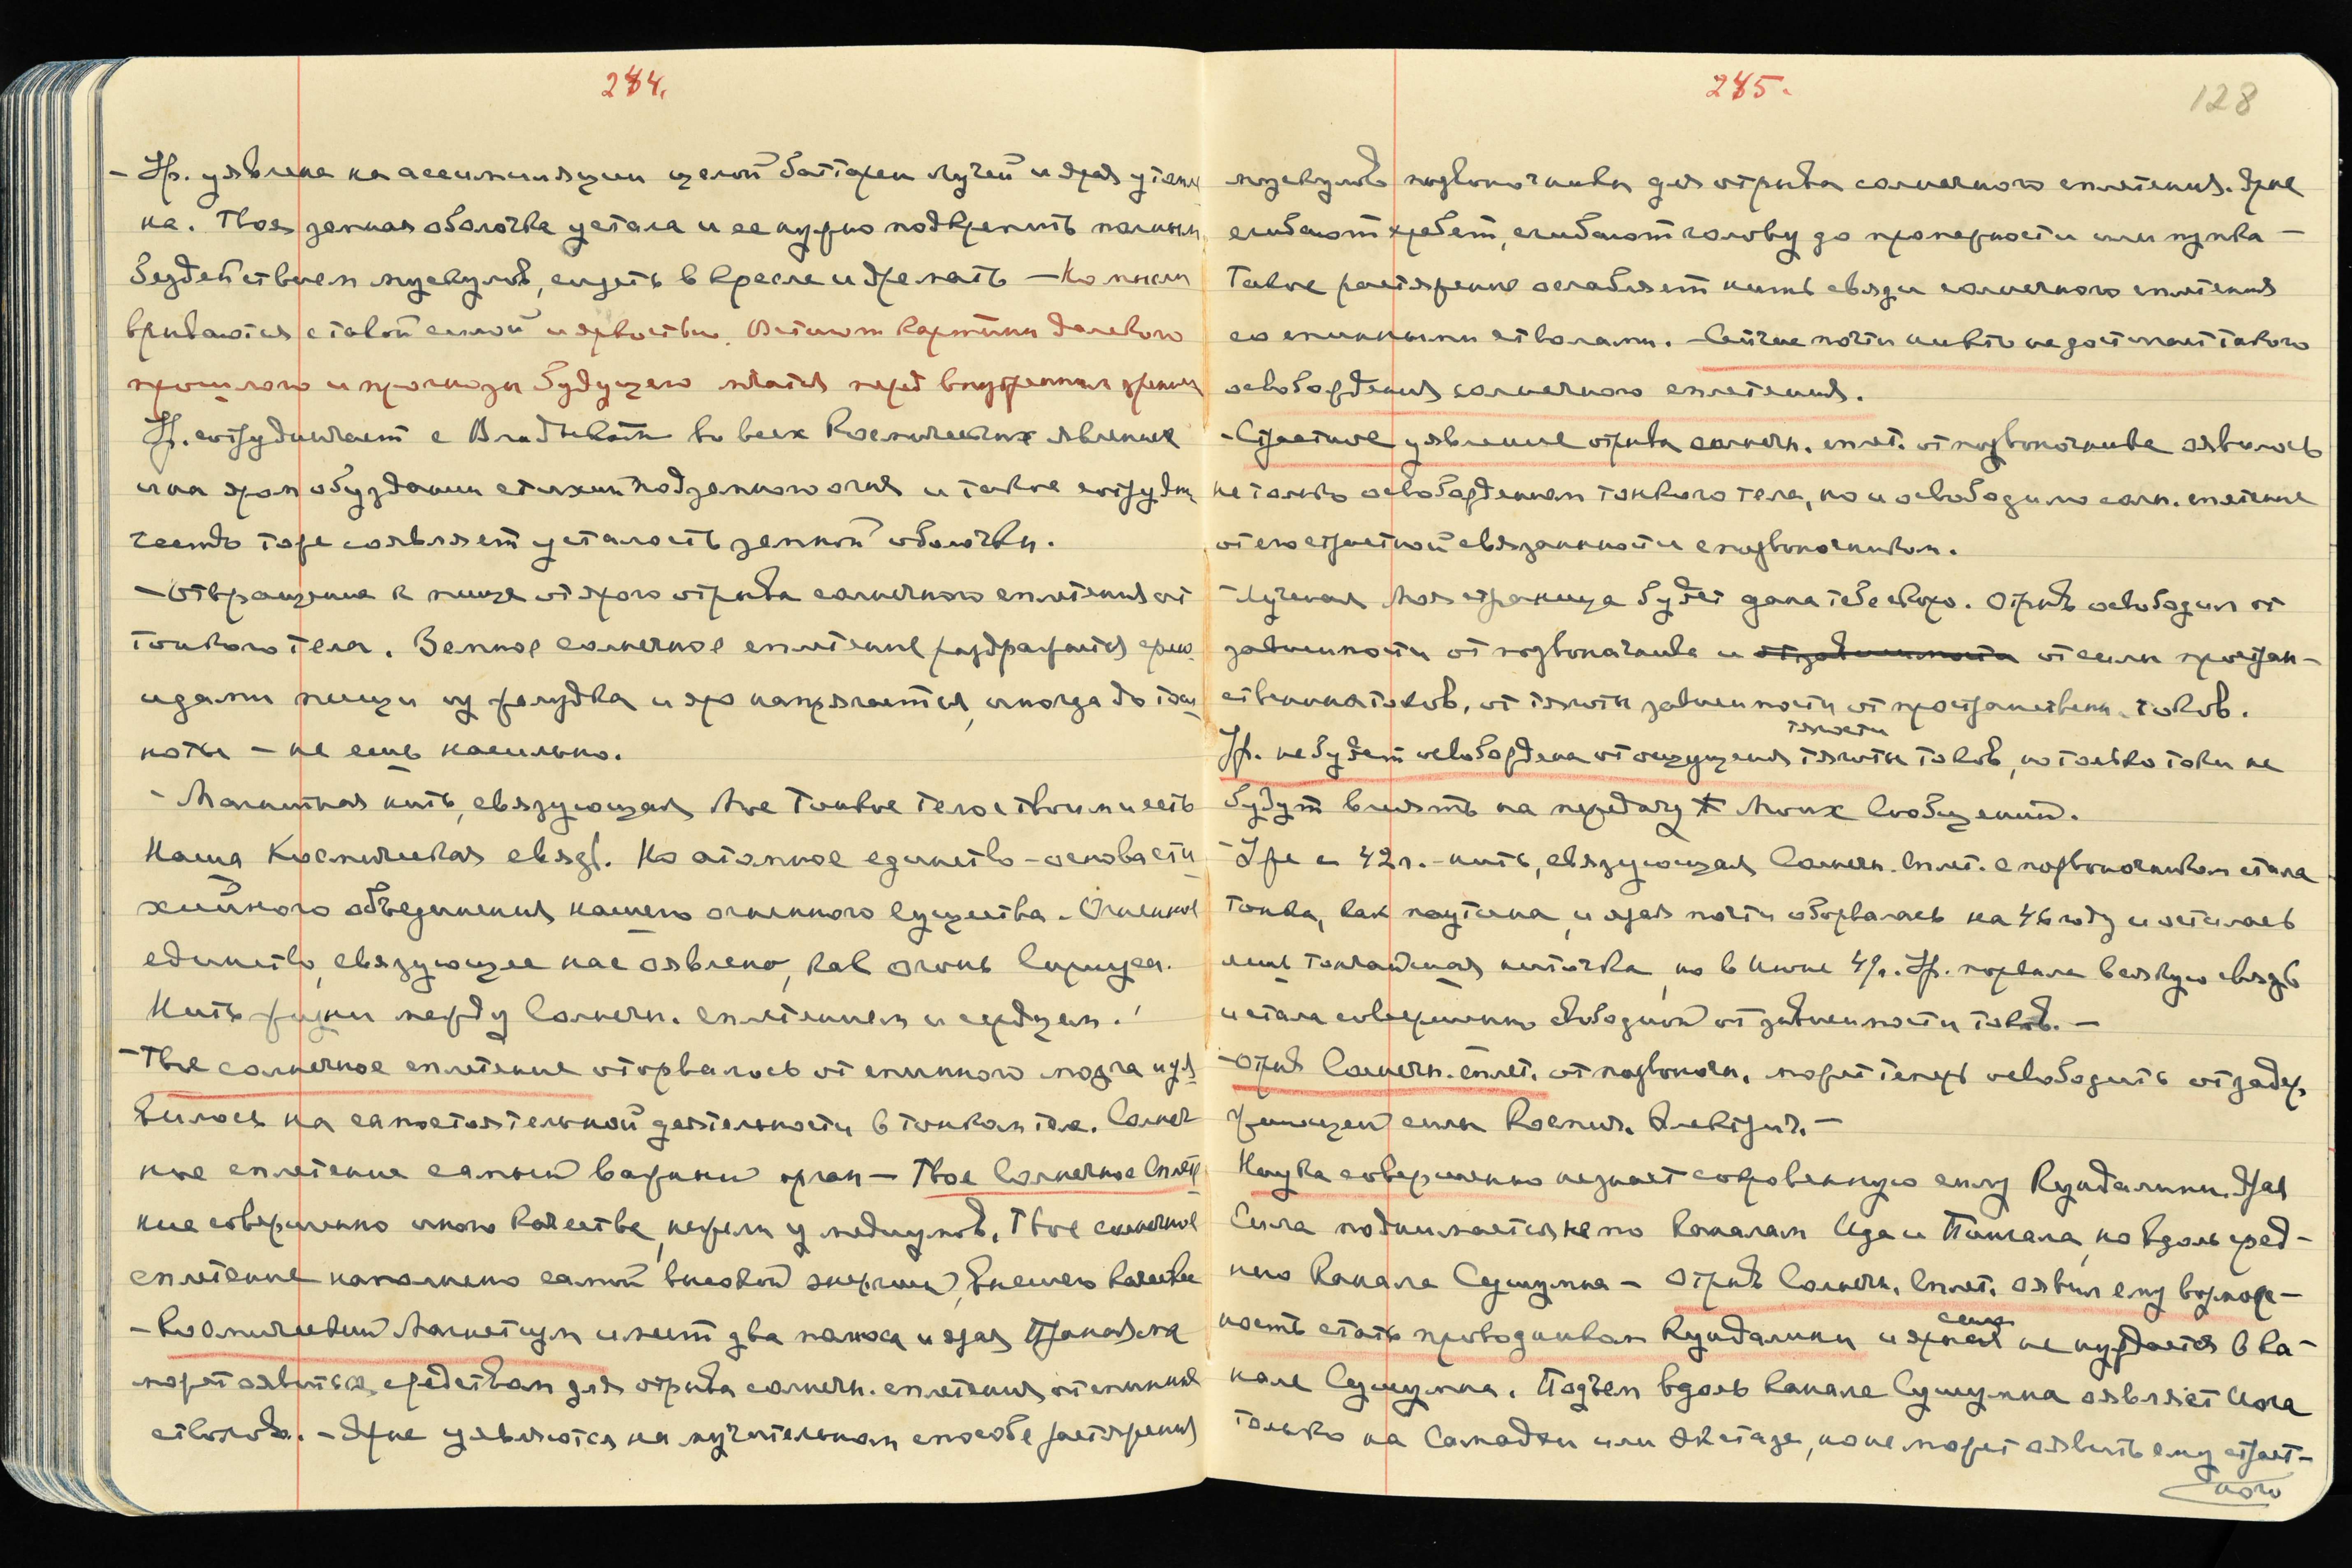 284.
- Ур. уявлена на ассимиляции целой батареи лучей и яра утомле
на. Твоя земная оболочка устала и ее нужно подкрепить полным
бездействием мускулов, сидеть в кресле и дремать - Но мысли
врываются с такой силой и яркостью. Встают картины далекого
прошлого и прогнозы будущего мчатся перед внутренним зрением
Ур. сотрудничает с Владыкою во всех Космических явлениях
и на яром обуздании стихии подземного огня и такое сотрудни
чество тоже соявляет усталость земной оболочки.
- Отвращение к пище от ярого отрыва солнечного сплетения от
тонкого тела. Земное солнечное сплетение раздражается
пищи из желудка и яро напрягается, иногда до тош
ноты - не ешь насильно.
- Магнитная нить, связующая Мое Тонкое тело с твоим и есть
Наша Космическая связь. Но атомное единство - основа сти
хийного объединения нашего огненного Существа. - Огненное
единство, связующее нас оявлено, как огонь Сириуса.
Нить жизни между Солнечн. сплетением и сердцем.
- Твое солнечное сплетение оторвалось от спинного мозга и уя
вилось на самостоятельной деятельности в тонком теле. Солнеч
ное сплетение самый важный орган - Твое Солнечное Сплете
ние совершенно иного качества, нежели у медиумов. Твое солнечное
сплетение наполнено самой высокой энергией, высшего качества
- Космический Магнетизм имеет два полюса и яра
может оявиться средством для отрыва солнечн. сплетения от спинных
стволов. - Ярые уявляются на мучительном способе растяжения
285.
128
мускулов позвоночника для отрыва солнечного сплетения. Ярые
сгибают хребет, сгибают голову до промежности или пупка -
Такое растяжение ослабляет нить связи солнечного сплетения
со спинными стволами. - Сейчас почти никто не достигает такого
освобождения солнечного сплетения.
- Страстное уявление отрыва солнечн. сплет. от позвоночника оявилось
не только освобождением тонкого тела, но и освободило солн. сплетение
от его страстной связанности с позвоночником.
- Лучшая Моя страница будет дана тебе скоро. Отрыв освободил от
зависимости от позвоночника и от силы простран-
ственных токов, от тягости зависимости от пространственн. токов.
тягости
Ур. не будет освобождена от ощущения тягости токов, но только токи не
будут влиять на передачу Моих Сообщений.
- Уже с 42 г. - нить, связующая Солнечн. Сплет. с позвоночником стала
тонка, как паутина, и яра почти оборвалась на 46 году и осталась
лишь тончайшая ниточка, но в Июне 49г. Ур. порвала всякую связь
и стала совершенно свободной от зависимости токов. -
- Отрыв Солнечн. сплет. от позвоночн. может теперь освободить от задер
живающей силы Космич. Электрич. -
Наука совершенно не знает сокровенную силу Кундалини. Ярая
Сила поднимается не по каналам Ида и Пингала, но вдоль сред-
него канала Сушумна - Отрыв Солнечн. Сплет. оявил ему возмож-
сила
ность стать проводником Кундалини и ярая не нуждается в ка-
нале Сушумна. Подъем вдоль канала Сушумна оявляет Йога
только на Самадхи или Экстазе, но не может оявить ему страст-
ного